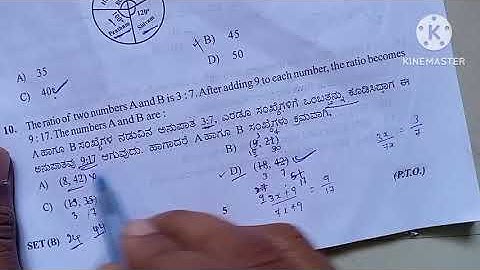 120°
Pension
Shivam
A) 35
B) 45
C) 40
D) 50
KINEMASTER
10. The ratio of two numbers A and B is 3 : 7. After adding 9 to each number, the ratio becomes
9 : 17. The numbers A and B are :
A ಹಾಗೂ B ಸಂಖ್ಯೆಗಳ ನಡುವಿನ ಅನುಪಾತ 3:7, ಎರಡೂ ಸಂಖ್ಯೆಗಳಿಗೆ ಒಂಬತ್ತನ್ನು ಕೂಡಿಸಿದ್ದಾಗ ಈ
ಅನುಪಾತವು 9:17 ಆಗುವುದು. ಹಾಗಾದರೆ A ಹಾಗೂ B ಸಂಖ್ಯೆಗಳು ಕ್ರಮವಾಗಿ,
A) (8, 42)
B) (9, 21)
C) (15, 35)
D) (18, 42)
3 17
3 7
3x/7x = 3/7
3x+9/7x+9 = 9/17
(P.T.O.)
SET (B)
5